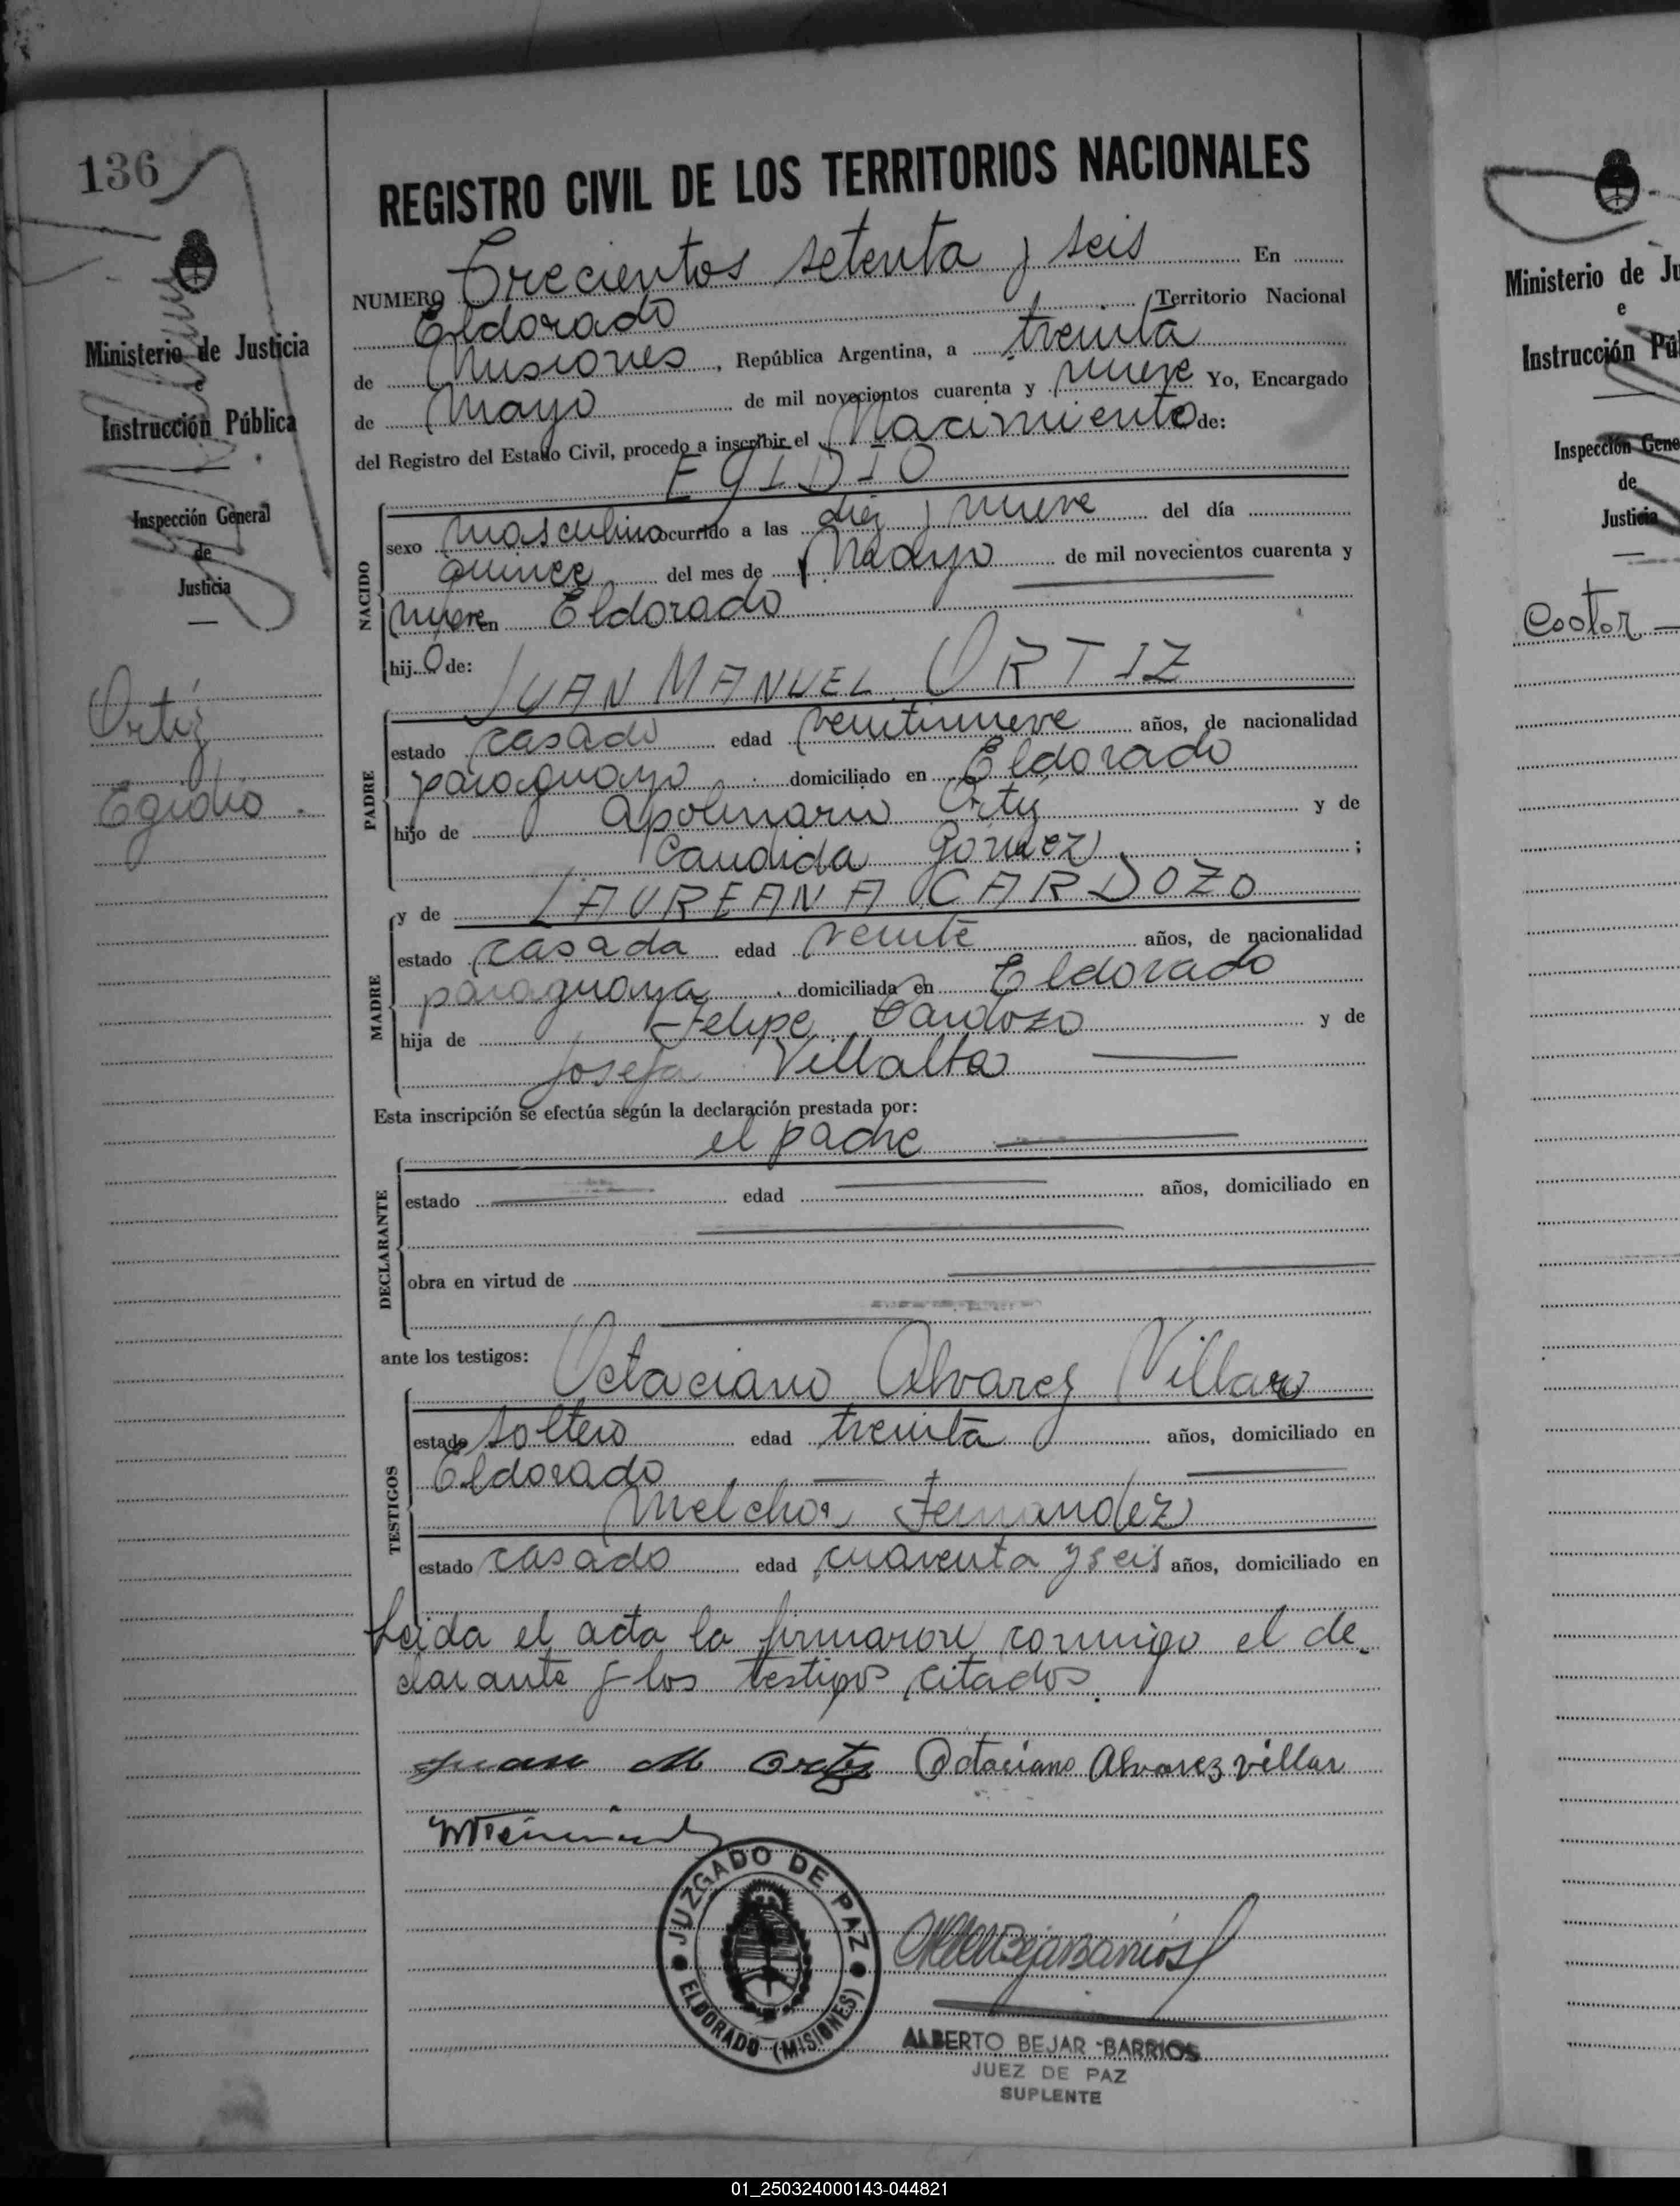 136
Ministerio de Justicia
e
Instrucción Pública
Inspección General
de
Justicia
Ortíz
Egidio.
REGISTRO CIVIL DE LOS TERRITORIOS NACIONALES
NUMERO Trecientos setenta y seis En
Eldorado Territorio Nacional
de Misiones, República Argentina, a treinta
de Mayo de mil novecientos cuarenta y nueve Yo, Encargado
del Registro del Estado Civil, procedo a inscribir el Nacimiento de:
EGIDIO
NACIDO
sexo masculino ocurrido a las diez y nueve del día
quince del mes de Mayo de mil novecientos cuarenta y
nueve en Eldorado
hijo de: JUAN MANUEL ORTIZ
PADRE
estado casado edad veintinueve años, de nacionalidad
paraguayo domiciliado en Eldorado
hijo de Apolinario Ortiz y de
Candida Gómez ;
y de LAUREANA CARDOZO
MADRE
estado casada edad veinte años, de nacionalidad
paraguaya domiciliada en Eldorado
hija de Felipe Cardozo y de
Josefa Villalba
Esta inscripción se efectúa según la declaración prestada por:
el padre
DECLARANTE
estado edad años, domiciliado en
obra en virtud de
ante los testigos: Octaciano Alvarez Villar
TESTIGOS
estado soltero edad treinta años, domiciliado en
Eldorado
Melchor Fernandez
estado casado edad cuarenta y seis años, domiciliado en
Leida el acta la firmaron conmigo el de-
clarante y los testigos citados.
Juan M Ortiz Octaciano Alvarez Villar
JUZGADO DE PAZ
ELDORADO (MISIONES)
ALBERTO BEJAR-BARRIOS
JUEZ DE PAZ
SUPLENTE
Ministerio de Ju
e
Instrucción Pú
Inspección Gene
de
Justicia
01_250324000143-044821